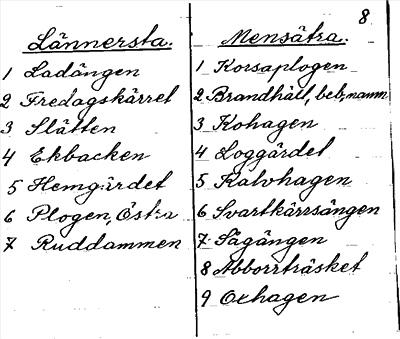 8
Lännersta.
1 Ladängen
2 Fredagskärret
3 Slätten
4 Ekbacken
5 Hemgärdet
6 Plogen, Östra
7 Ruddammen
Mensätra.
1 Korsaplogen
2 Brandhäll, beb.namn
3 Kohagen
4 Loggärdet
5 Kalvhagen
6 Svartkärrsängen
7 Sågängen
8 Abborrträsket
9 Oxhagen